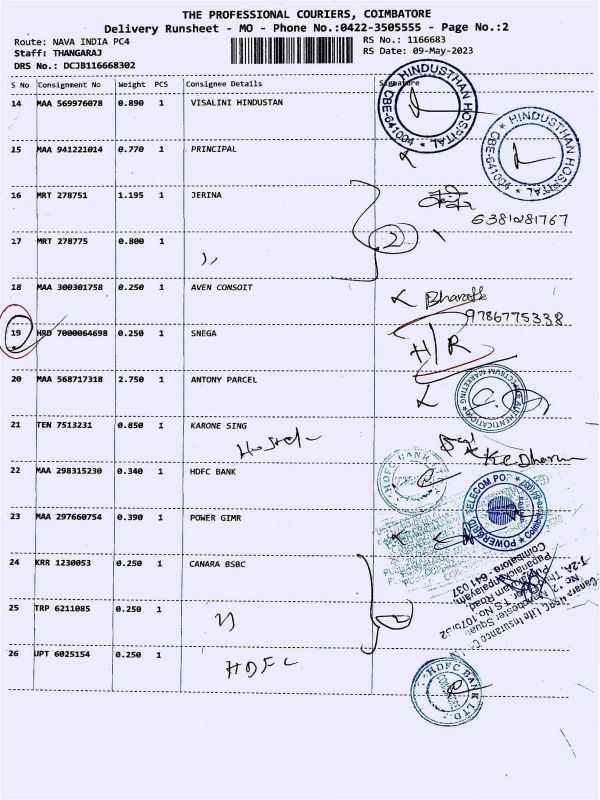 THE PROFESSIONAL COURIERS, COIMBATORE
Delivery Runsheet - MO - Phone No.:0422-3505555 - Page No.:2
Route: NAVA INDIA PC4
RS No.: 1166683
Staff: THANGARAJ
RS Date: 09-May-2023
DRS No.: DCJB116668302
S No Consignment No Weight PCS Consignee Details Signature
14 MAA 569976078 0.890 1 VISALINI HINDUSTAN
HINDUSTHAN HOSPITAL
CBE-641004
HINDUSTHAN HOSPITAL
CBE-641004
15 MAA 941221014 0.770 1 PRINCIPAL
16 MRT 278751 1.195 1 JERINA
6381081767
17 MRT 278775 0.800 1
2
18 MAA 300301758 0.250 1 AVEN CONSOIT
9786775338
19 HRD 7000064698 0.250 1 SNEGA
H/R
20 MAA 568717318 2.750 1 ANTONY PARCEL
21 TEN 7513231 0.850 1 KARONE SING
22 MAA 298315230 0.340 1 HDFC BANK
HDFC BANK
23 MAA 297660754 0.390 1 POWER GIMR
POWERGRID TELECOM
24 KRR 1230053 0.250 1 CANARA BSBC
Coimbatore - 641 037
25 TRP 6211085 0.250 1
2
26 UPT 6025154 0.250 1
HDFC
HDFC BANK LTD.